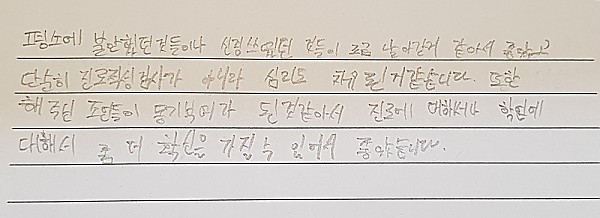 평소에 불안했던 것들이나 신경쓰였던 것들이 조금 날아간거 같아서 좋았고
단순히 진로적성검사가 아니라 심리도 치유된거같습니다. 또한
해주신 조언들이 동기부여가 된것같아서 진로에 대해서나 학업에
대해서 좀 더 확신을 가질 수 있어서 좋았습니다.